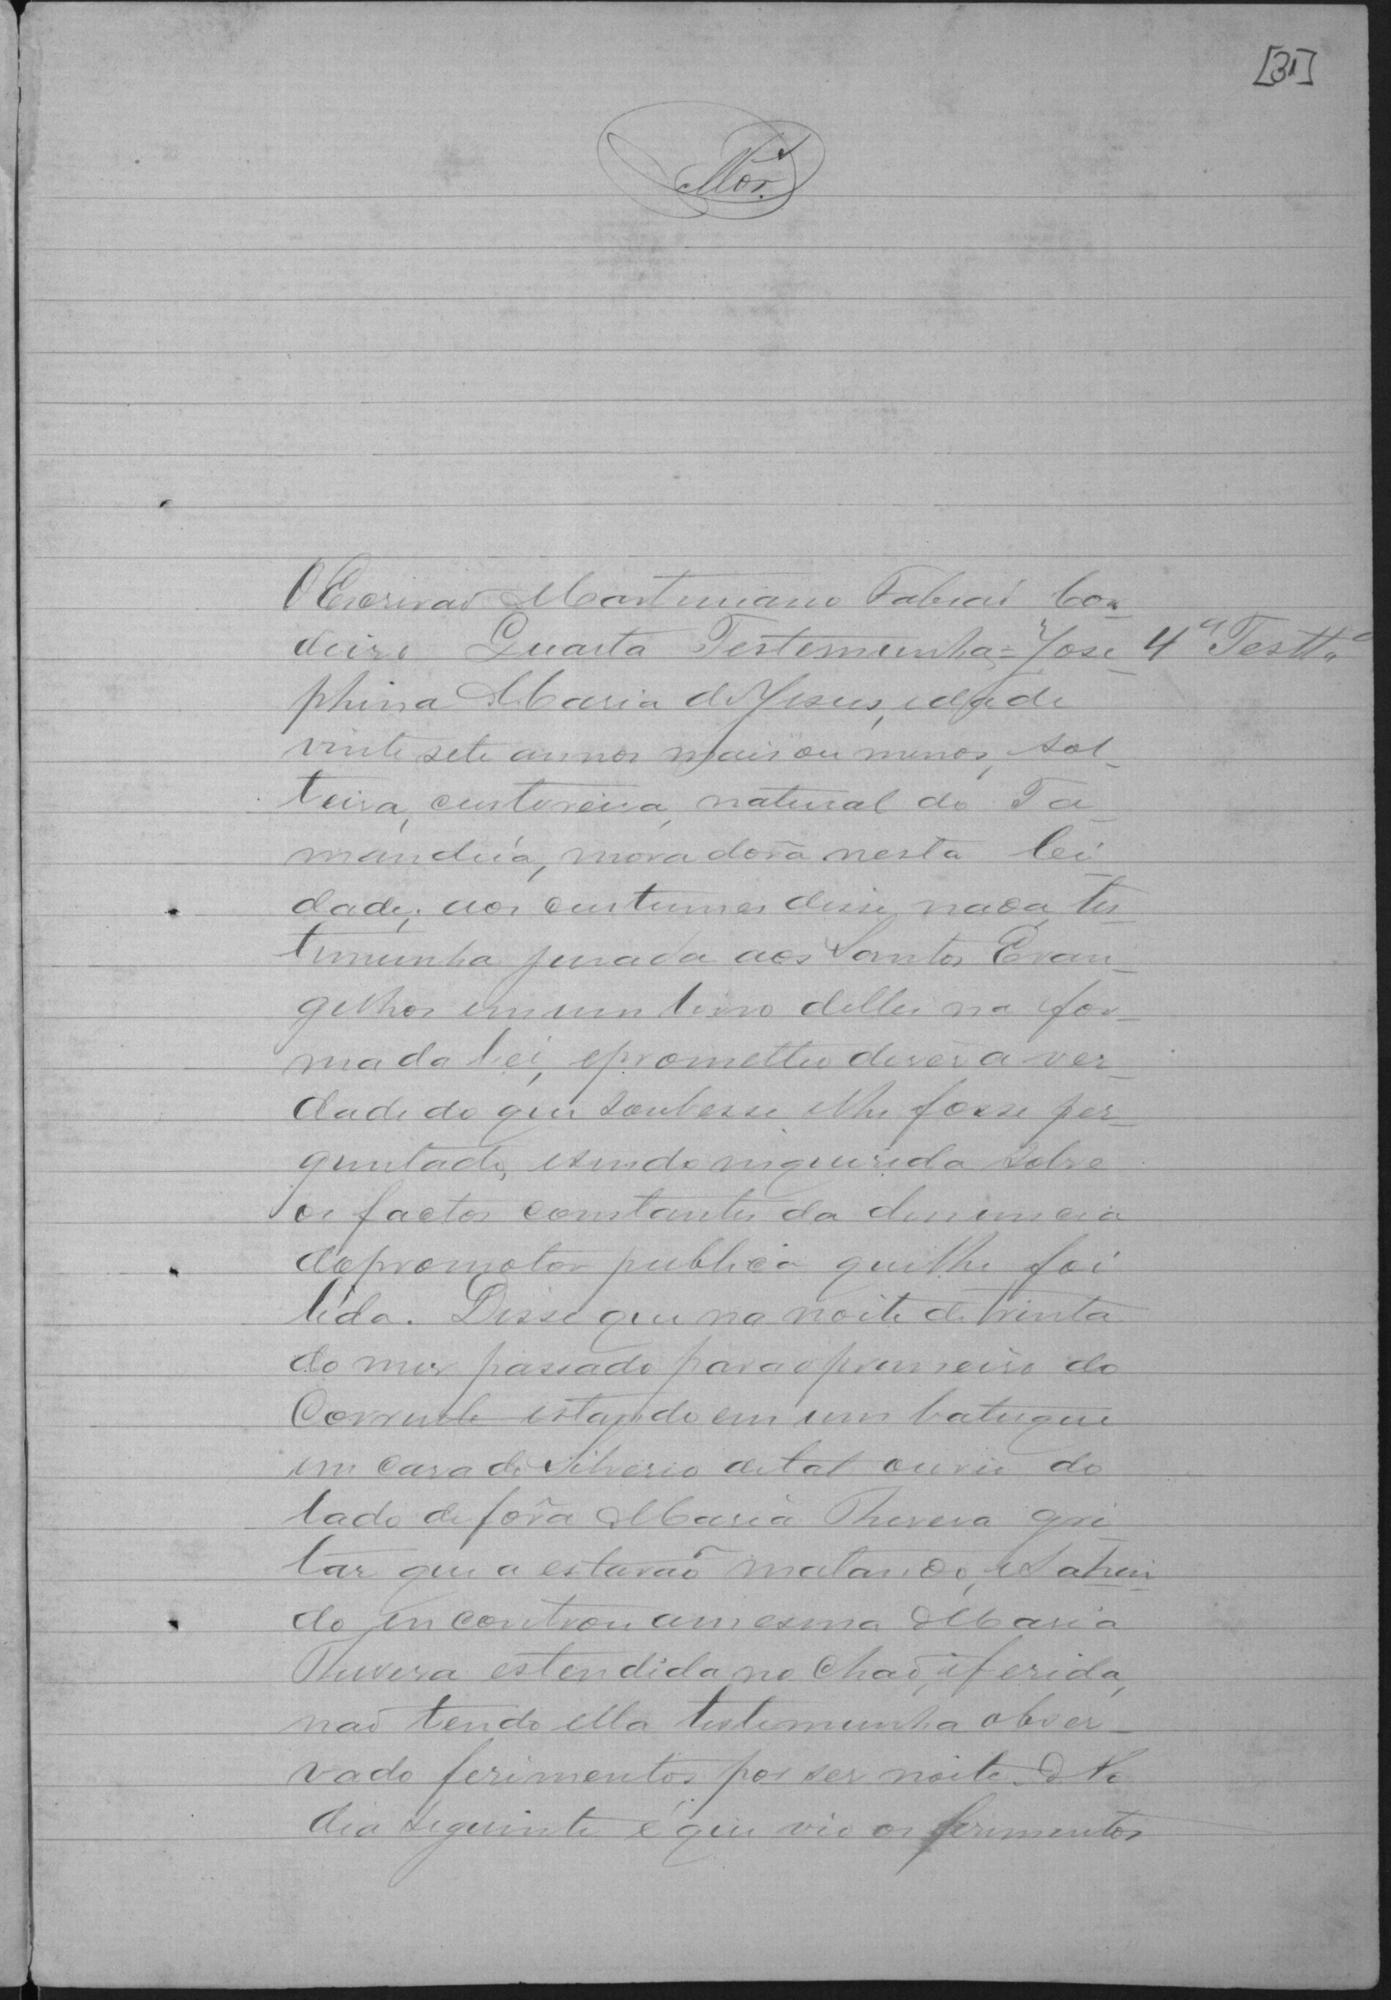 [31]
Mor.
O Escrivaõ Martiniano Fabiaõ Cor
deiro Quarta Testemunha = Jose 4ª Testtª
phina Maria de Jesus, idade
vinte sete annos mais ou menos, sol
teira, custureira, natural do Ta
manduá, moradora nesta Ci
dade; aos custumes disse nada, tes
temunha jurada aos Santos Evan
gelhos em um livro delles na for
ma da lei, e prometteo dizer a ver
dade do que soubesse e lhe fosse per
guntado, e sendo inquirida sobre
os factos constantes da denuncia
do promotor publico que lhe foi
lida. Disse que na noite de trinta
do mez passado para o primeiro do
Corrente estando em um batuque
em casa de Silverio de tal ouvio do
lado de fora Maria Thereza gri
tar que a estavaõ matando, e Sahin
do encontrou a mesma Maria
Thereza estendida no Chaõ, e ferida,
naõ tendo ella testemunha obser
vado ferimentos por ser noite. No
dia seguinte é que vio os ferimentos